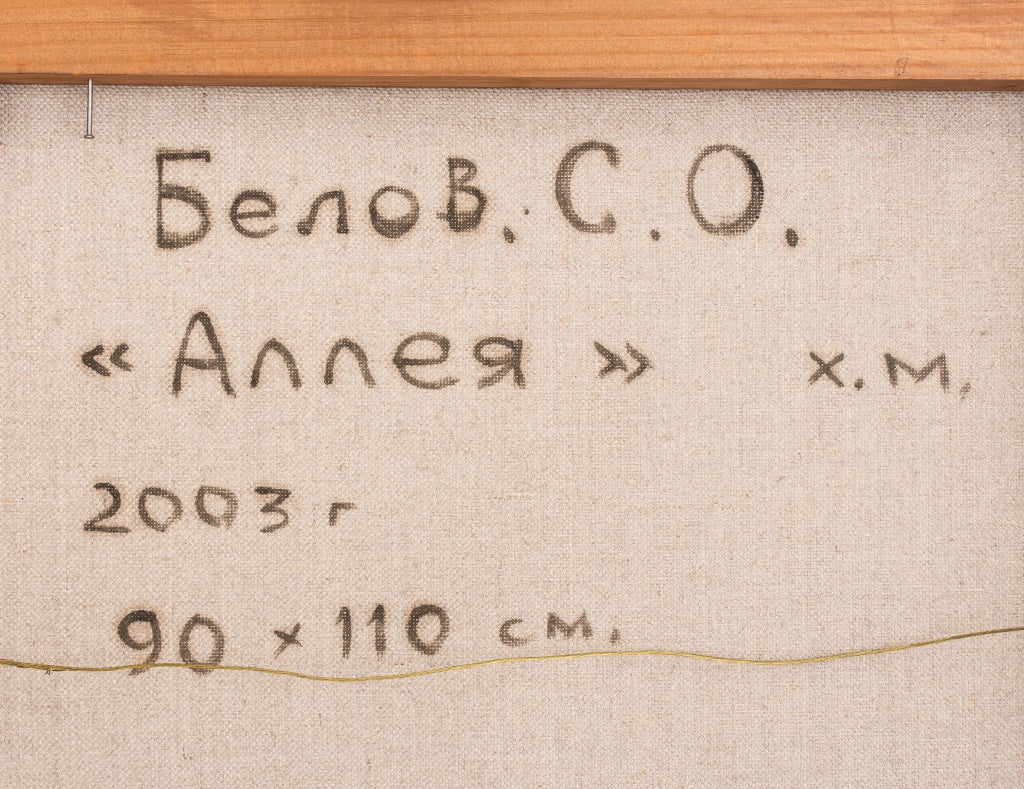 Белов. С. О.
«Аллея» х. м.
2003 г
90 x 110 см.